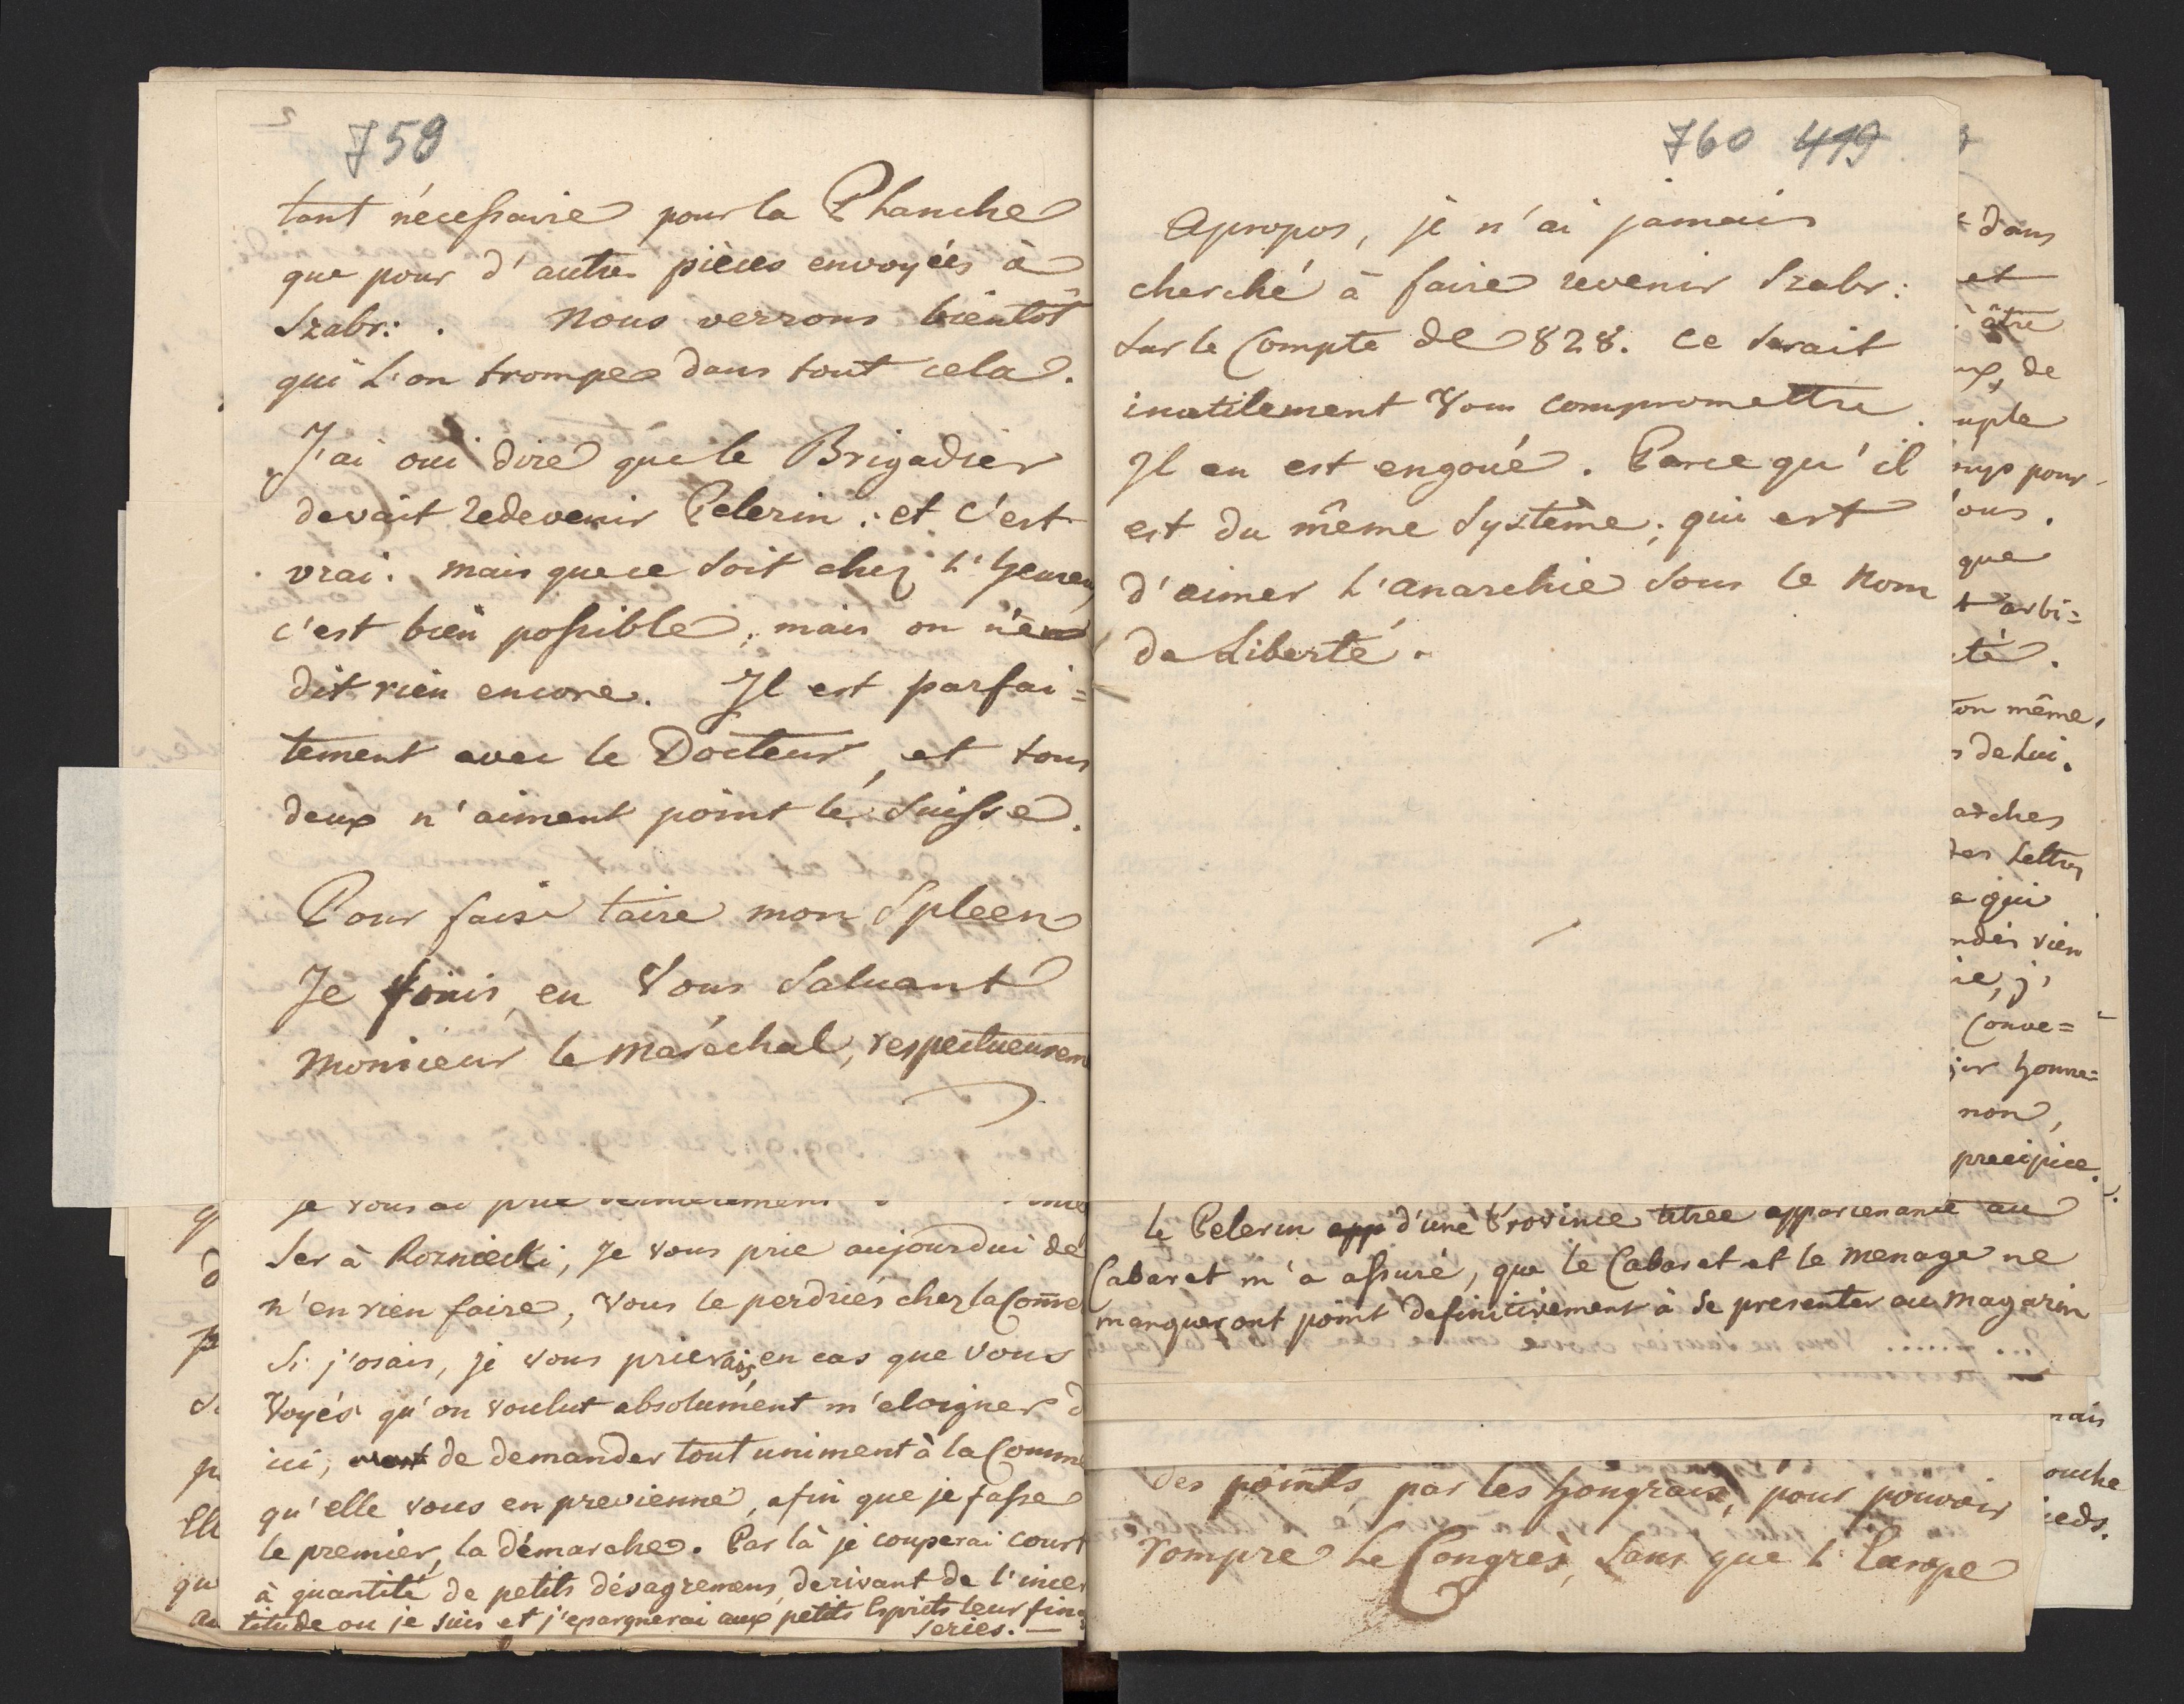 759
tant nécessaire pour la Planche
que pour d'autres pièces envoyées à
Szabr: . Nous verrons bientôt
qui L'on trompe dans tout cela.
J'ai oui dire que le Brigadier
devait redevenir Pelerin; et c'est
vrai. mais que ce soit chez L'
c'est bien possible; mais on n'en
dit rien encore. Il est parfai=
tement avec le Docteur, et tous
deux n'aiment point le Suisse.
Pour faire taire mon Spleen
Je finis, en Vous Saluant
Monsieur le Maréchal, respectueusem
je vous ai prié dernierement
ser à Rozniecki, Je vous prie aujourdui de
n'en rien faire, Vous le perdriés chez la Comme
Si j'osais, je vous prierais, en cas que vous
Voyés qu'on voulut absolument m'eloigner d
ici, de demander tout uniment à la Comme
qu'elle vous en previenne, afin que je fasse
le premier, la démarche. Par là je couperai court
à quantité de petits désagremens, derivant de l'incer
titude ou je suis et j'epargnerai aux petits Esprits leur fines
series. —
760 419
Apropos, je n'ai jamais
cherché à faire revenir Szabr:
Sur le Compte de 828. Ce Serait
inutilement Vous compromettre.
Il en est engoué. Parce qu'il
est du même Système; qui est
d'aimer L'anarchie Sous le Nom
de Liberté.
le Pelerin app d'une Province titrée appartenante au
Cabaret m'a assuré, que le Cabaret et le menage ne
manqueront point definitivement à se presenter au magazin
des points par les hongrais, pour pouvoir
rompre Le Congrès, Sans que L'Europe
dans
et
de
uple
pour
ous.
que
arbi=
té.
on même,
de Lui.
arches
Lettres
qui
rien
j'
Conve=
honne=
non,
precipice.
ouche
ieds.